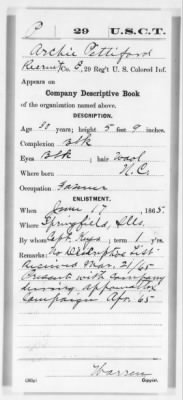 P 29 U.S.C.T.
Archie Pettiford
Recruit, Co. E, 29 Reg't U. S. Colored Inf.
Appears on
Company Descriptive Book
of the organization named above.
DESCRIPTION.
Age 20 years; height 5 feet 9 inches.
Complexion Blk
Eyes Blk; hair Wool
Where born N.C.
Occupation Farmer
ENLISTMENT.
When Jany 17, 1865.
Where Springfield, Ills.
By whom Capt. Keys; term 1 y'rs.
Remarks: No Descriptive List
Received Mar. 21/65
Present with Company
during Appomattox
Campaign Apr. 65
Warren
Copyist.